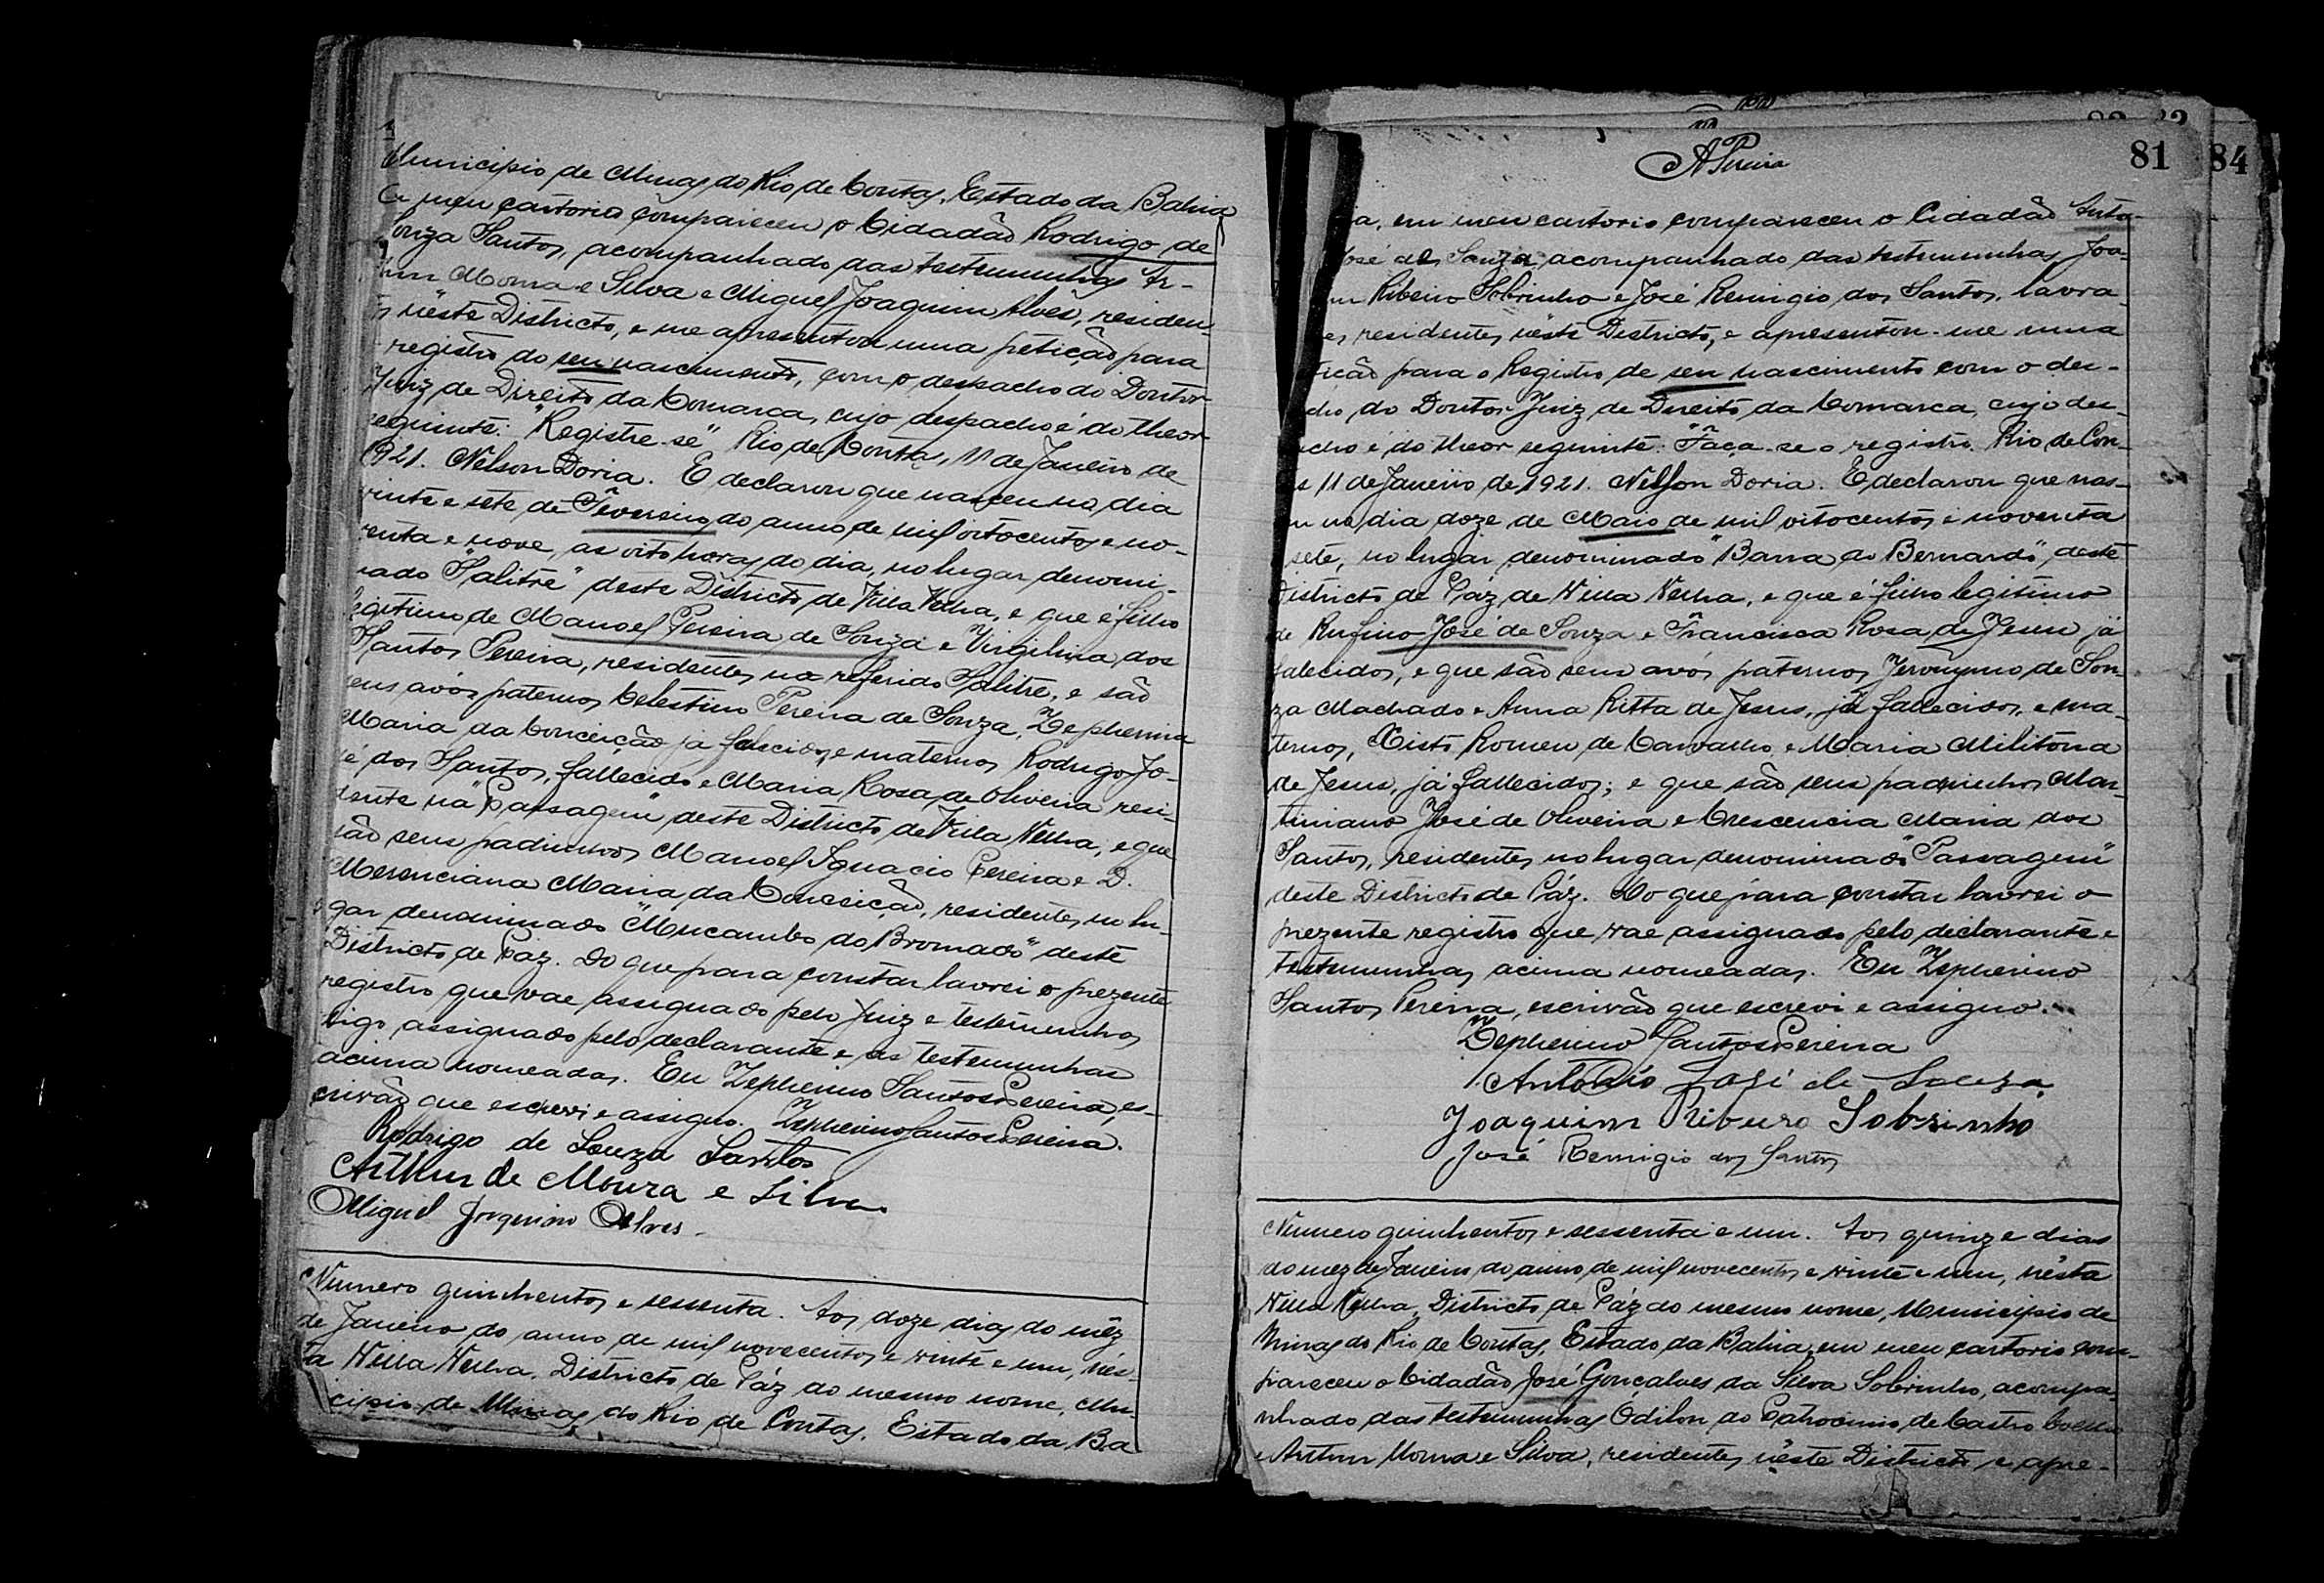 Municipio de Minas do Rio de Contas, Estado da Bahia
meu cartorio compareceu o Cidadão Rodrigo de
Souza Santos, acompanhado das testemunhas Ar-
Moura e Silva e Miguel Joaquim Alves, residen-
nêste Districto, e me apresentou uma petição para
registro do seu nascimento, com o despacho do Doutor
Juiz de Direito da Comarca, cujo despacho é do theor
seguinte: "Registre-se" Rio de Contas, 11 de Janeiro de
1921. Nelson Doria. E declarou que nasceu no dia
vinte e sete de Fevereiro do anno de mil oitocentos e no-
venta e nove, as oito horas do dia, no lugar denomi-
nado "Salitre" deste Districto de Villa Velha, e que é filho
legitimo de Manoel Pereira de Souza e Virgilina dos
Santos Pereira, residentes no referido Salitre, e são
seus avós paternos Celestino Pereira de Souza, Zepherina
Maria da Conceição já fallecidos, e maternos Rodrigo Jo-
sé dos Santos, fallecido e Maria Rosa de Oliveira resi-
dente na "Passagem" deste Districto de Villa Velha, e que
são seus padrinhos Manoel Ignacio Pereira e D.
Merenciana Maria da Conceição, residentes no lu-
gar denominado "Mucambo do Bromado" deste
Districto de Paz. Do que para constar lavrei o prezente
registro que vae assignado pelo Juiz e testemunhas
digo assignado pelo declarante e as testemunhas
acima nomeadas. Eu Zepherino Santos Pereira, es-
crivão que escrevi e assigno. Zepherino Santos Pereira.
Rodrigo de Souza Santos
Arthur de Moura e Silva
Miguel Joaquim Alves.
Numero quinhentos e sessenta. Aos doze dias do mêz
de Janeiro do anno de mil novecentos e vinte e um, nes-
ta Villa Velha, Districto de Páz do mesmo nome, Mu-
cipio de Minas do Rio de Contas, Estado da Ba
APereira
81 84
ia, em meu cartorio compareceu o Cidadão Anto-
José de Souza acompanhado das testemunhas Joa-
Ribeiro Sobrinho e José Remigio dos Santos, lavra-
es residentes nêste Districto, e apresentou-me uma
tição para o Registro de seu nascimento com o des-
cho do Doutor Juiz de Direito da Comarca, cujo des-
acho é do theor seguinte: "Faça-se o registro. Rio de Con-
s 11 de Janeiro de 1921. Nelson Doria. E declarou que nas-
u no dia doze de Maio de mil oitocentos e noventa
sete, no lugar denominado "Barra do Bernardo", deste
Districto de Páz de Villa Velha, e que é filho legitimo
de Rufino José de Souza e Francisca Rosa de Jesus já
falecidos, e que são seus avós paternos Jeronymo de Sou-
za Machado e Anna Ritta de Jesus, já fallecidos, e ma-
ternos, Xisto Romeu de Carvalho e Maria Militona
de Jesus, já fallecidos; e que são seus padrinhos Mar-
tiniano José de Oliveira e Crescencia Maria dos
Santos, residentes no lugar denominado "Passagem"
deste Districto de Páz. Do que para constar lavrei o
prezente registro que vae assignado pelo declarante e
testemunhas acima nomeadas. Eu Zepherino
Santos Pereira, escrivão que escrevi e assigno.
Zepherino Santos Pereira
Antonio José de Souza
Joaquim Ribeiro Sobrinho
José Remigio dos Santos
Numero quinhentos e sessenta e um. Aos quinze dias
do mez de Janeiro do anno de mil novecentos e vinte e um, nésta
Villa Velha, Districto de Páz do mesmo nome, Municipio de
Minas do Rio de Contas, Estado da Bahia, em meu cartorio com-
pareceu o Cidadão José Gonçalves da Silva Sobrinho, acompa-
nhado das testemunhas Odilon do Patrocinio de Castro Coelho
e Arthur Moura e Silva, residentes nêste Districto e apre-